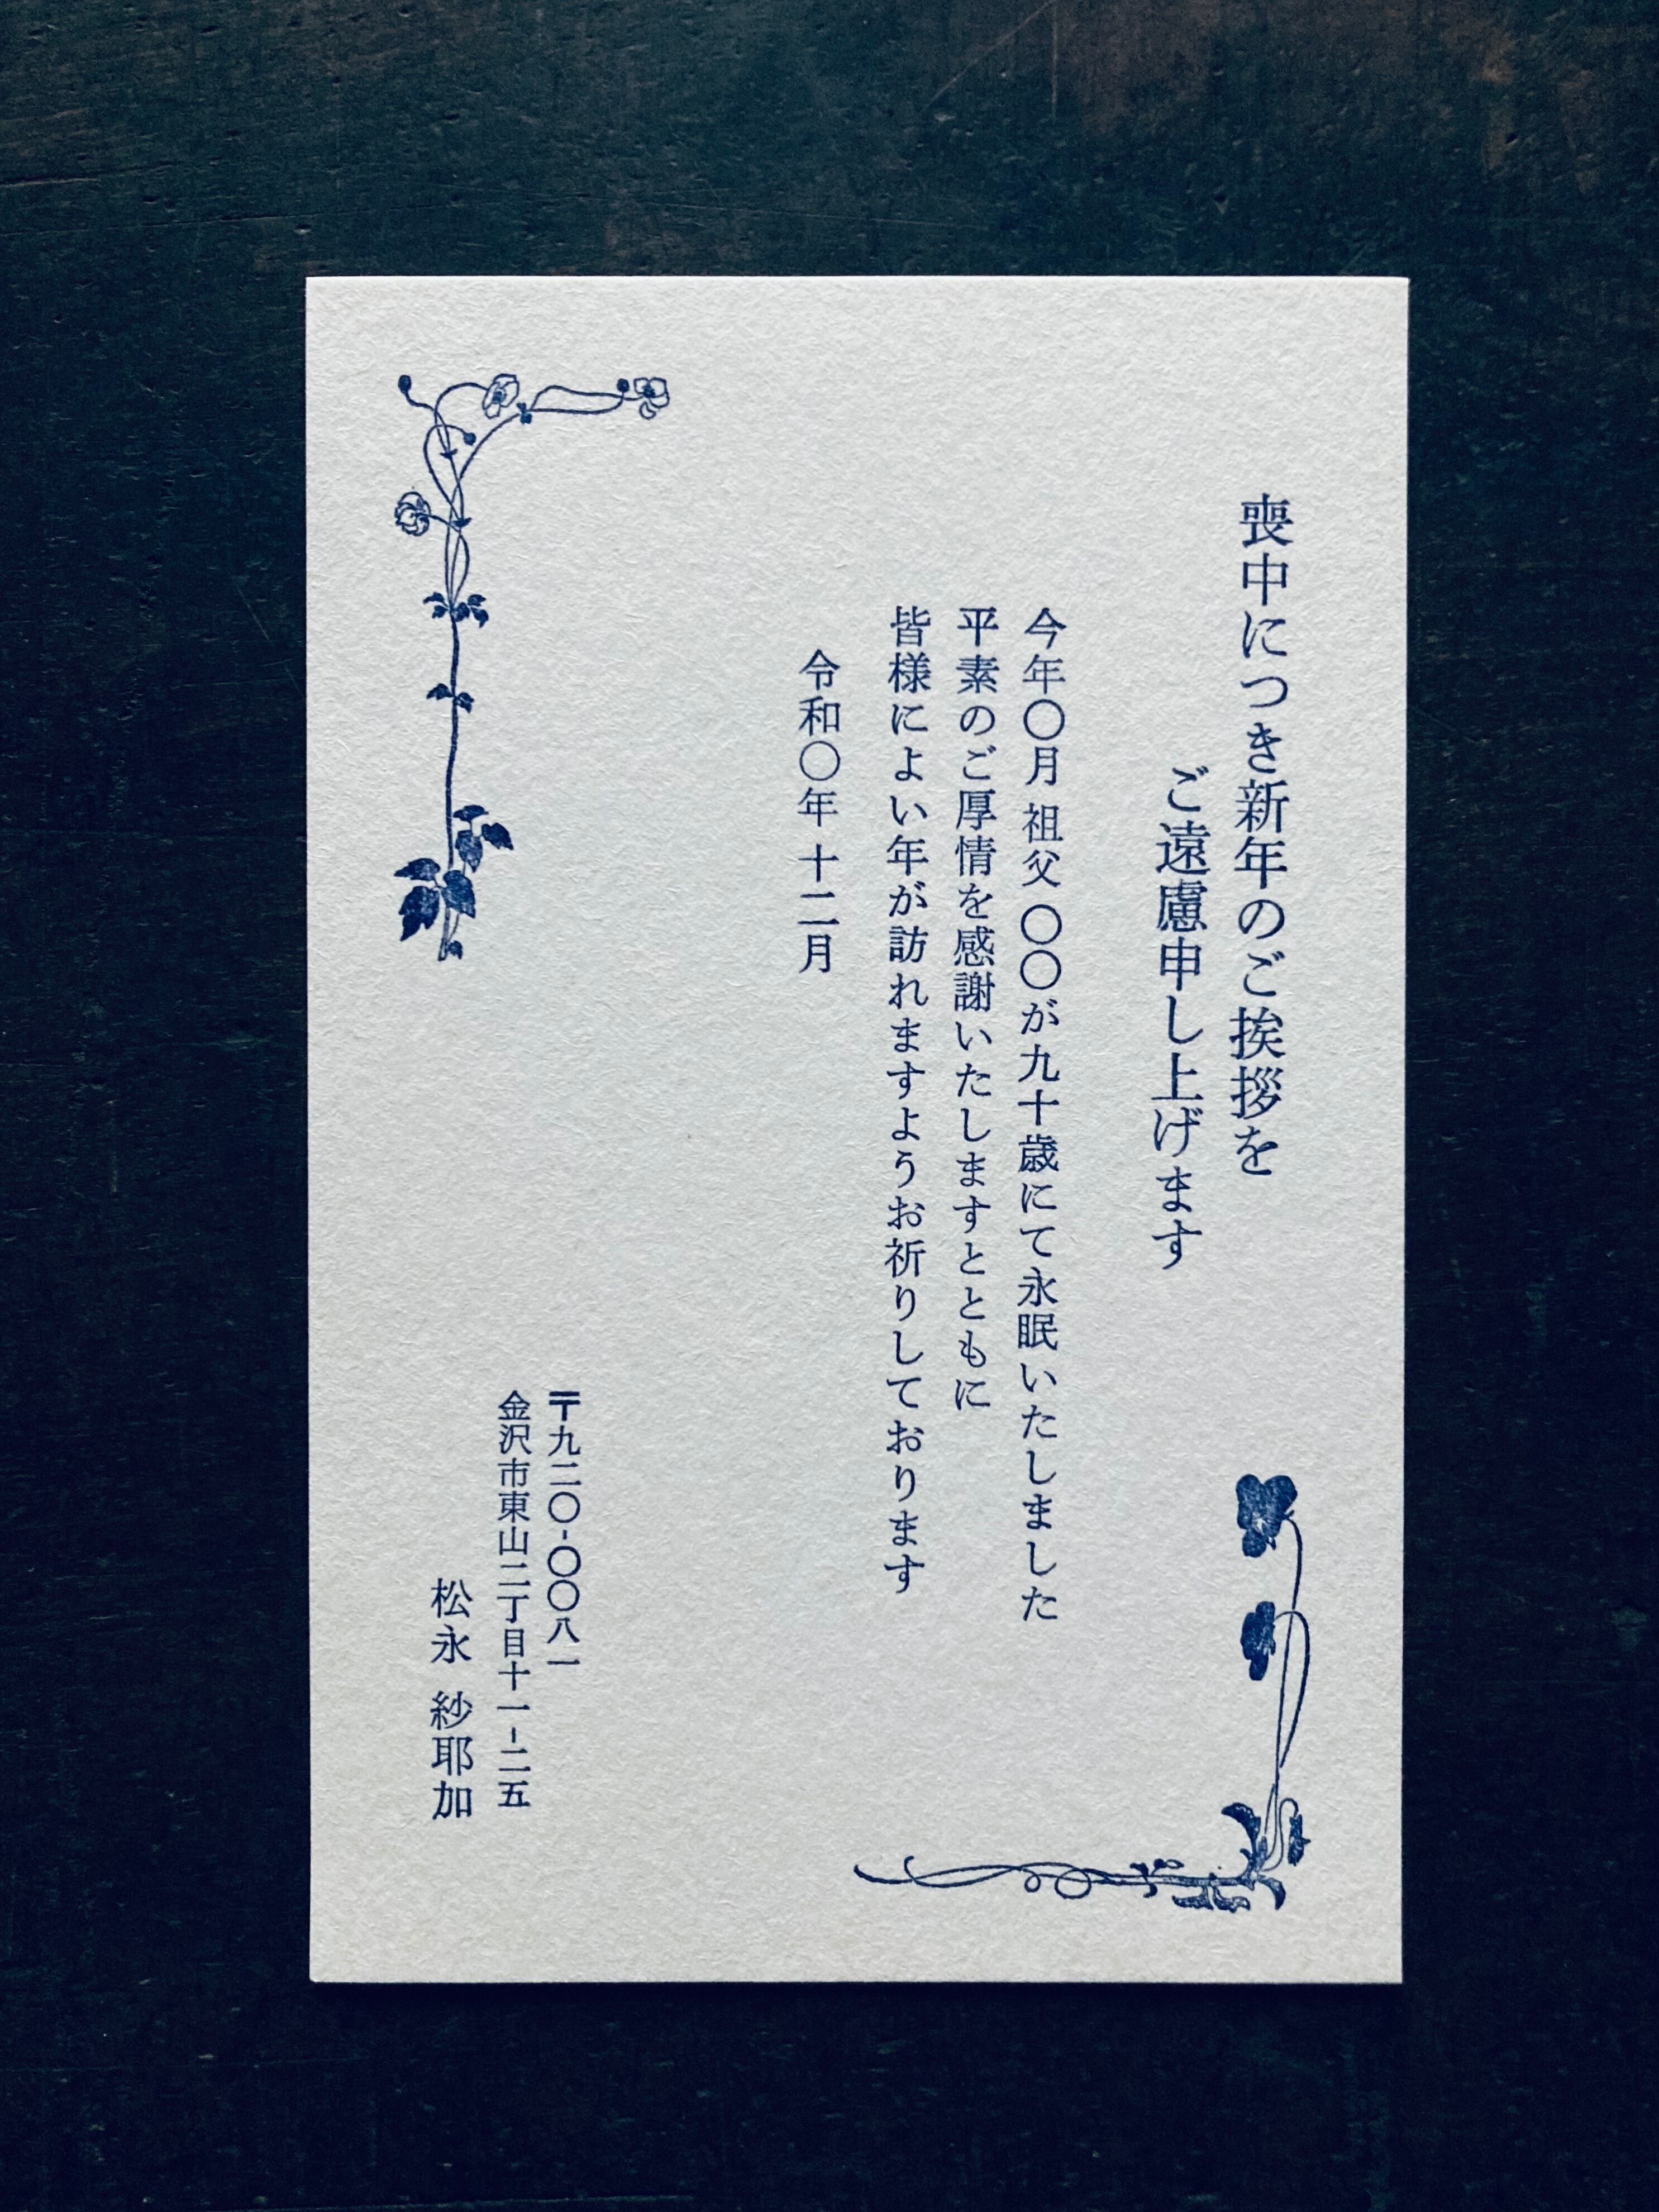 喪中につき新年のご挨拶を
ご遠慮申し上げます
今年〇月 祖父 〇〇が九十歳にて永眠いたしました
平素のご厚情を感謝いたしますとともに
皆様によい年が訪れますようお祈りしております
令和〇年 十二月
〒九二〇-〇〇八一
金沢市東山二丁目十一-二五
松永 紗耶加